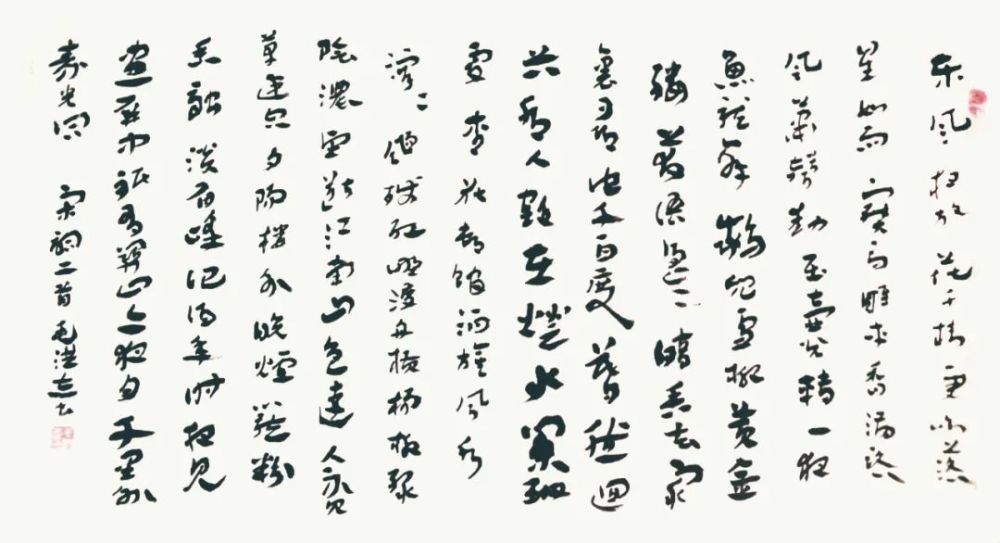 东风夜放花千树更吹落
星如雨宝马雕车香满路
凤箫声动玉壶光转一夜
鱼龙舞蛾儿雪柳黄金
缕笑语盈盈暗香去众
裏寻他千百度蓦然回
首那人却在灯火阑珊
处杏花村馆酒旗风水
溶溶飏残红野渡舟横杨柳绿
阴浓望断江南山色远人不见
草连空夕阳楼外晚烟笼粉
香融淡眉峰记得年时相见
画屏中只有关山今夜月千里外
素光同宋词二首毛洪志书